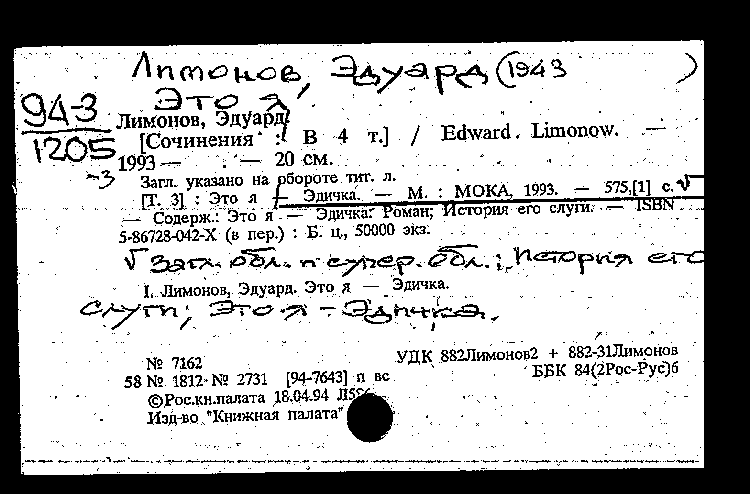 Лимонов, Эдуард (1943 )
Это я
94-3
1205
-3
Лимонов, Эдуард.
[Сочинения : В 4 т.] / Edward Limonow. —
1993 — . — 20 см.
Загл. указано на обороте тит. л.
[Т. 3] : Это я — Эдичка. — М. : МОКА, 1993. — 575,[1] с. √
— Содерж.: Это я — Эдичка: Роман; История его слуги. — ISBN
5-86728-042-X (в пер.) : Б. ц., 50000 экз.
√ Загл. обл. и супер. обл.: История его
I. Лимонов, Эдуард. Это я — Эдичка.
слуги; Это я - Эдичка.
№ 7162
58 № 1812 № 2731 [94-7643] п вс
©Рос.кн.палата 18.04.94
Изд-во "Книжная палата"
УДК 882Лимонов2 + 882-31Лимонов
ББК 84(2Рос-Рус)6